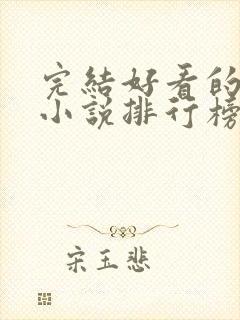 完結好看的
小說排行榜
宋玉悲